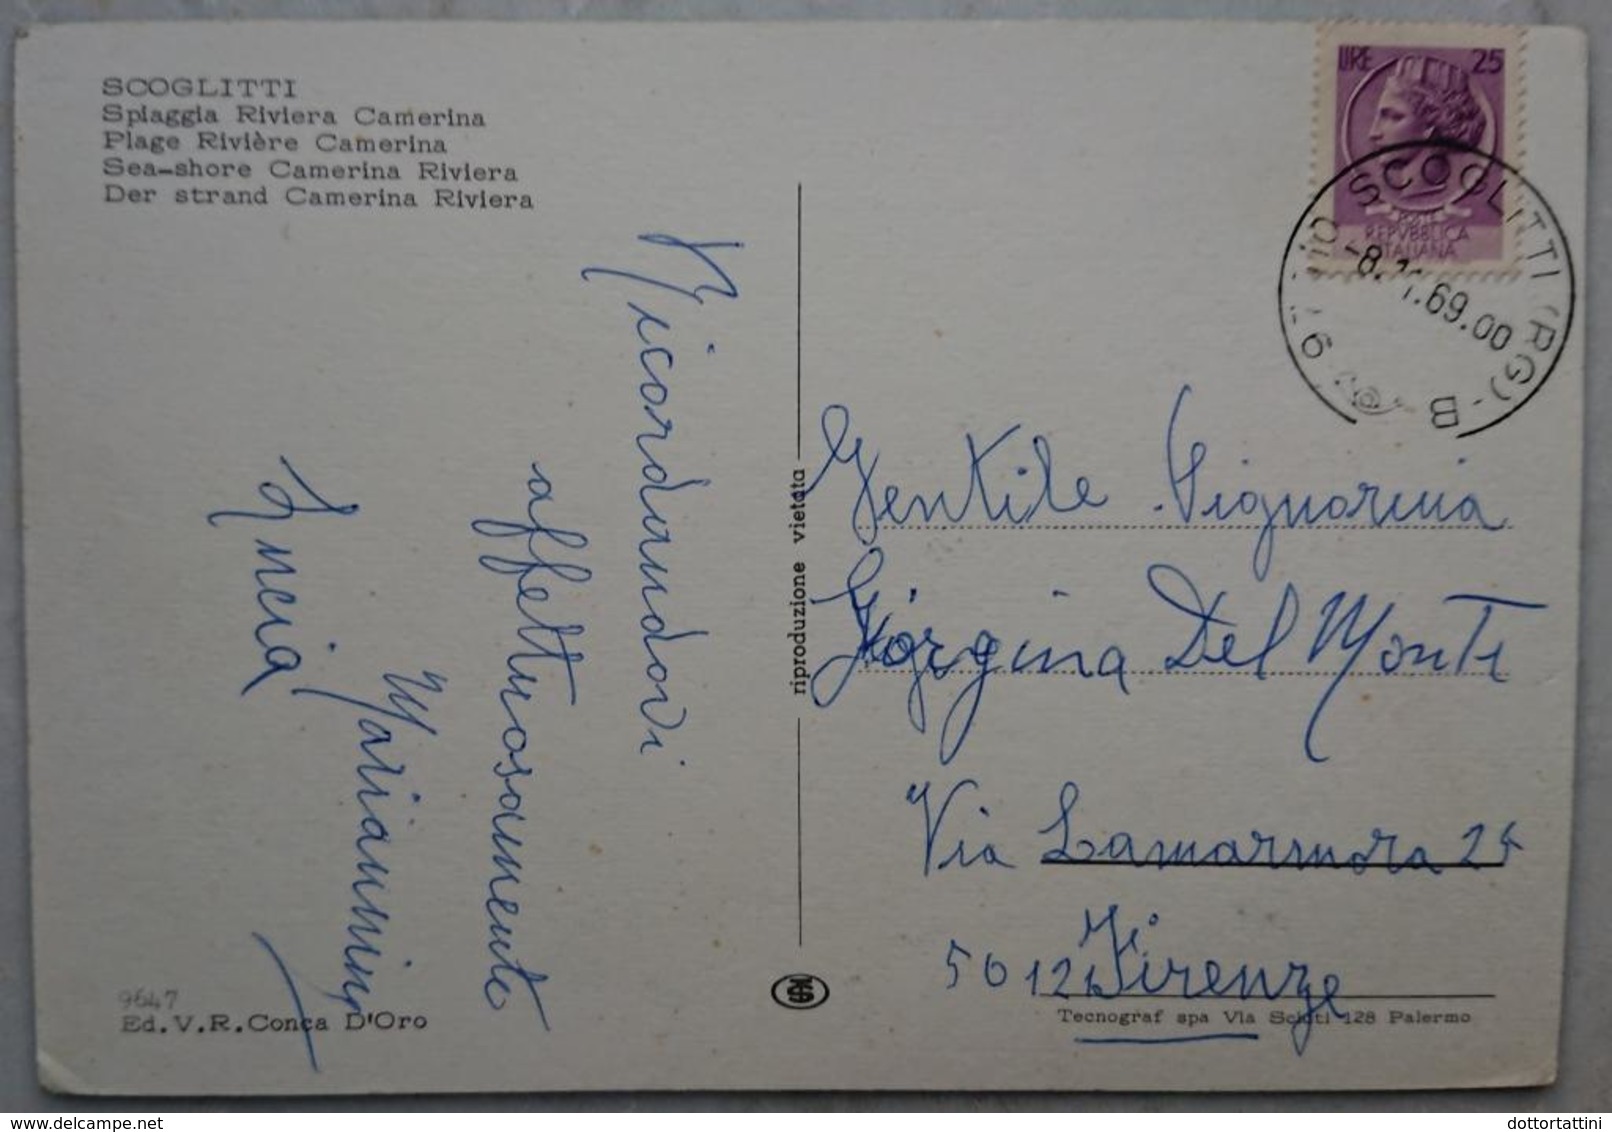 SCOGLITTI
Spiaggia Riviera Camerina
Plage Rivière Camerina
Sea-shore Camerina Riviera
Der strand Camerina Riviera
Ricordandovi
affettuosamente
Mariannina
Lucia
9647
Ed. V. R. Conca D'Oro
riproduzione vietata
LIRE 25
POSTE
REPVBBLICA
ITALIANA
SCOGLITTI (RG) - B
-8. .69.00
Gentile Signorina
Giorgina Del Monte
Via Lamarmora 24
50121 Firenze
Tecnograf spa Via Scioti 128 Palermo
dottortattini